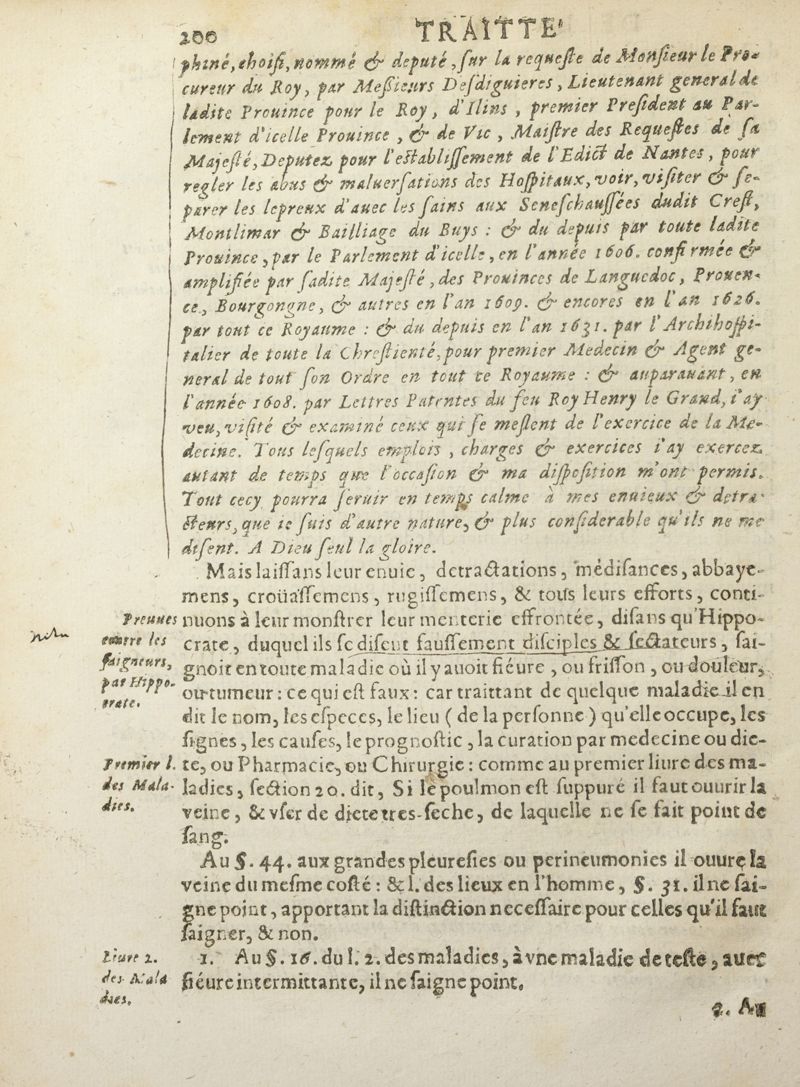 200 TRAITTE'
phiné, choisi, nommé & deputé, sur la requeste de Monsieur le Pro-
cureur du Roy, par Messieurs Desdiguieres, Lieutenant general de
ladite Prouince pour le Roy, d'Ilins, premier President au Par-
lement d'icelle Prouince, & de Vic, Maistre des Requestes de sa
Majesté, Deputez pour l'establissement de l'Edict de Nantes, pour
regler les abus & maluersations des Hospitaux, voir, visiter & se-
parer les lepreux d'auec les sains aux Seneschaussées dudit Crest,
Montlimar & Bailliage du Buys : & du depuis par toute ladite
Prouince, par le Parlement d'icelle, en l'année 1606. confirmée &
amplifiée par sadite Majesté, des Prouinces de Languedoc, Prouen-
ce, Bourgongne, & autres en l'an 1609. & encores en l'an 1626.
par tout ce Royaume : & du depuis en l'an 1631. par l'Archihospi-
talier de toute la Chrestienté, pour premier Medecin & Agent ge-
neral de tout son Ordre en tout ce Royaume : & auparauant, en
l'année 1608. par Lettres Patentes du feu Roy Henry le Grand, i'ay
veu, visité & examiné ceux qui se meslent de l'exercice de la Me-
decine. Tous lesquels emplois, charges & exercices i'ay exercez
autant de temps que l'occasion & ma disposition m'ont permis.
Tout cecy pourra seruir en temps calme à mes enuieux & detra-
cteurs, que ie suis d'autre nature, & plus considerable qu'ils ne me
disent. A Dieu seul la gloire.
Mais laissans leur enuie, detractations, médisances, abbaye-
mens, croüassemens, rugissemens, & tous leurs efforts, conti-
Preuues nuons à leur monstrer leur menterie effrontée, disans qu'Hippo-
contre les crate, duquel ils se disent faussement disciples & sectateurs, sai-
saigneurs, gnoit en toute maladie où il y auoit fiéure, ou frisson, ou douleur,
par Hippo- ou tumeur : ce qui est faux : car traittant de quelque maladie il en
crate. dit le nom, les especes, le lieu ( de la personne ) qu'elle occupe, les
signes, les causes, le prognostic, la curation par medecine ou die-
Premier l. te, ou Pharmacie, ou Chirurgie : comme au premier liure des ma-
des Mala- ladies, section 20. dit, Si le poulmon est suppuré il faut ouurir la
dies. veine, & vser de diete tres-seche, de laquelle ne se fait point de
sang.
Au §. 44. aux grandes pleuresies ou perineumonies il ouure la
veine du mesme costé : & l. des lieux en l'homme, §. 31. il ne sai-
gne point, apportant la distinction necessaire pour celles qu'il faut
saigner, & non.
Liure 2. 1. Au §. 16. du l. 2. des maladies, à vne maladie de teste, auec
des Mala fiéure intermittante, il ne saigne point.
dies,
2. Au